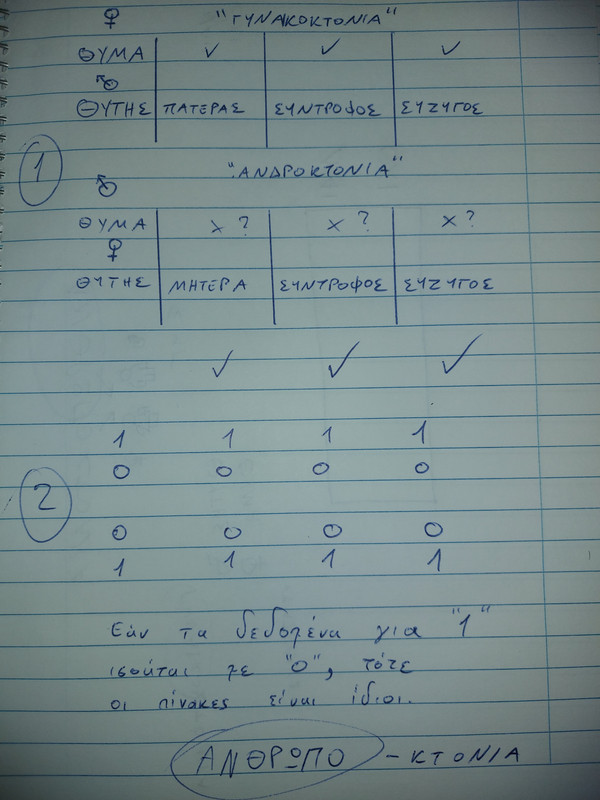 ♀ "ΓΥΝΑΚΟΚΤΟΝΙΑ"
ΘΥΜΑ ✓ ✓ ✓
♂
ΘΥΤΗΣ ΠΑΤΕΡΑΣ ΣΥΝΤΡΟΦΟΣ ΣΥΖΥΓΟΣ
1
"ΑΝΔΡΟΚΤΟΝΙΑ"
♂
ΘΥΜΑ x ? x ? x ?
♀
ΘΥΤΗΣ ΜΗΤΕΡΑ ΣΥΝΤΡΟΦΟΣ ΣΥΖΥΓΟΣ
✓ ✓ ✓
1 1 1 1
0 0 0 0
2
0 0 0 0
1 1 1 1
Εάν τα δεδομένα για "1"
ισούται με "0", τότε
οι πίνακες είναι ίδιοι.
ΑΝΘΡΩΠΟ - ΚΤΟΝΙΑ